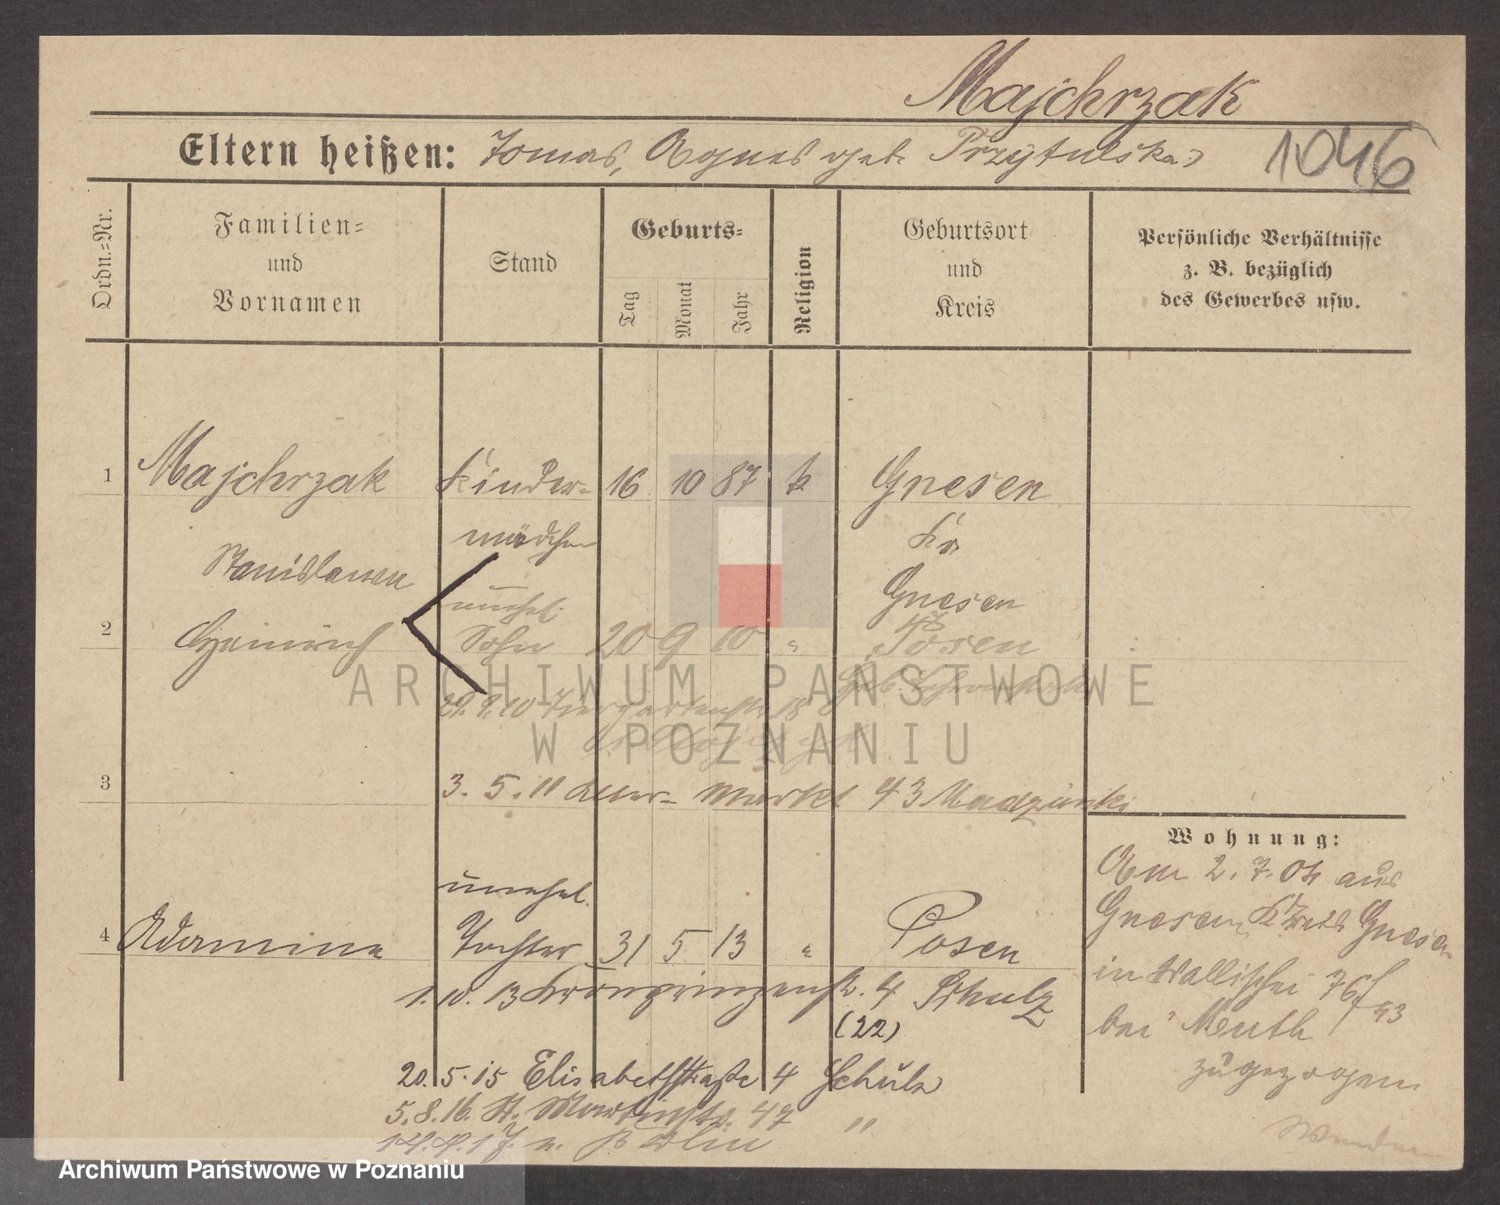 Majchrzak
1046
Eltern heißen: Tomas, Agnes geb. Przytulska
Ordn.-Nr.
Familien-
und
Vornamen
Stand
Geburts-
Tag
Monat
Jahr
Religion
Geburtsort
und
Kreis
Persönliche Verhältnisse
z. B. bezüglich
des Gewerbes usw.
1 Majchrzak Kinder- 16 10 87 k Gnesen
mädchen Kr
Stanislawa Gnesen
unehel.
2 Heinrich Sohn 20 9 10 " Posen
29. 9. 10 Tiergartenstr. 18
3
3. 5. 11 Alter- Markt 43 Madzinski
unehel.
4 Adamine Tochter 31 5 13 " Posen
1. 10. 13 Kronprinzenstr. 4 Schulz
(22)
20. 5. 15 Elisabethstraße 4 Schulz
5. 8. 16. St. Martinstr. 47 "
17. n. Berlin
Wohnung:
Am 2. 7. 04 aus
Gnesen, Kreis Gnesen
in Wallischei 76/73
bei Muth
zugezogen
ARCHIWUM PAŃSTWOWE
W POZNANIU
Archiwum Państwowe w Poznaniu